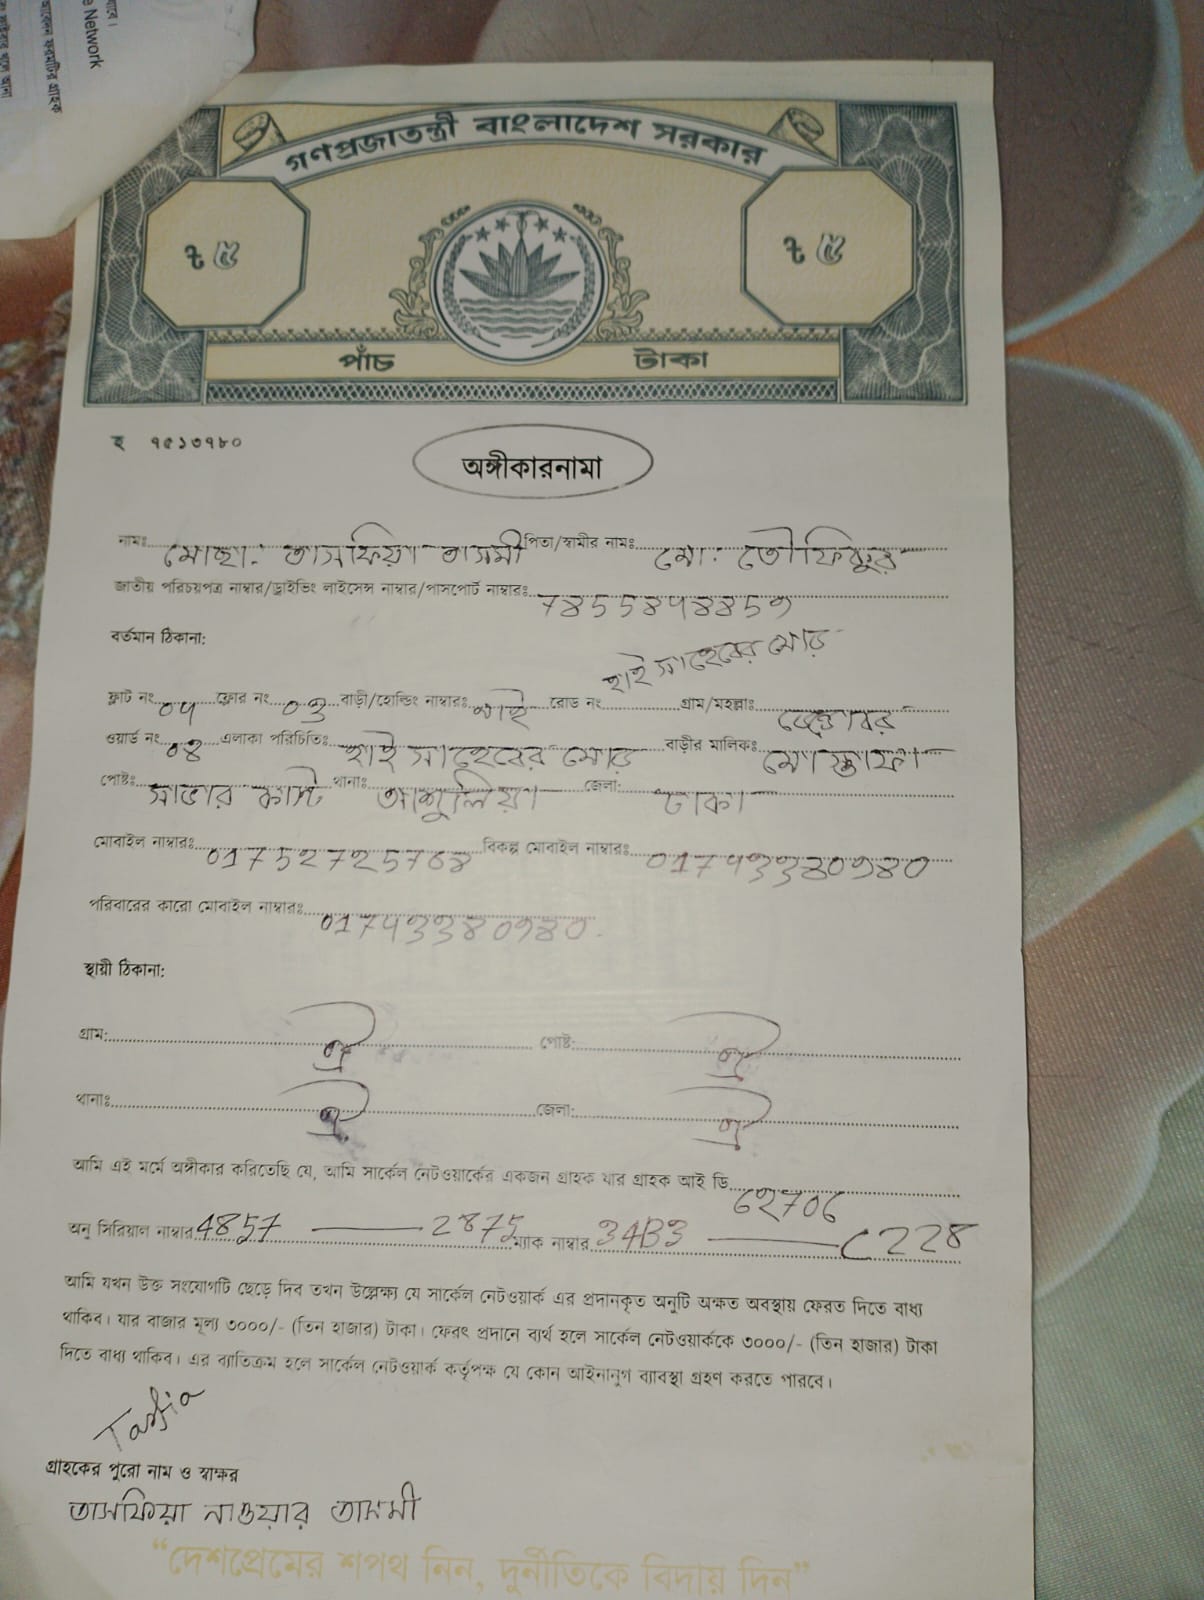 e Network
আবেদন ফরমটির গ্রাহক
গণপ্রজাতন্ত্রী বাংলাদেশ সরকার
৳ ৫ ৳ ৫
পাঁচ টাকা
হ ৭৫১৩৭৮০
অঙ্গীকারনামা
নামঃ মোছা: তাসফিয়া তাসমী পিতা/স্বামীর নামঃ মো: তৌফিকুর
জাতীয় পরিচয়পত্র নাম্বার/ড্রাইভিং লাইসেন্স নাম্বার/পাসপোর্ট নাম্বারঃ
বর্তমান ঠিকানা:
হাই সাহেবের মোড়
ফ্লাট নং ফ্লোর নং ০৩ বাড়ী/হোল্ডিং নাম্বারঃ নাই রোড নং গ্রাম/মহল্লাঃ
ওয়ার্ড নং ০৪ এলাকা পরিচিতিঃ হাই সাহেবের মোড় বাড়ীর মালিকঃ মোস্তাফা
পোষ্টঃ সাভার থানাঃ আশুলিয়া জেলা: ঢাকা
মোবাইল নাম্বারঃ বিকল্প মোবাইল নাম্বারঃ
পরিবারের কারো মোবাইল নাম্বারঃ
স্থায়ী ঠিকানা:
গ্রাম: ঐ পোষ্ট: ঐ
থানাঃ ঐ জেলা: ঐ
আমি এই মর্মে অঙ্গীকার করিতেছি যে, আমি সার্কেল নেটওয়ার্কের একজন গ্রাহক যার গ্রাহক আই ডি
অনু সিরিয়াল নাম্বার 4857 — 2875 ম্যাক নাম্বার 34B3 — C228
আমি যখন উক্ত সংযোগটি ছেড়ে দিব তখন উল্লেক্ষ্য যে সার্কেল নেটওয়ার্ক এর প্রদানকৃত অনুটি অক্ষত অবস্থায় ফেরত দিতে বাধ্য
থাকিব। যার বাজার মূল্য ৩০০০/- (তিন হাজার) টাকা। ফেরৎ প্রদানে ব্যর্থ হলে সার্কেল নেটওয়ার্ককে ৩০০০/- (তিন হাজার) টাকা
দিতে বাধ্য থাকিব। এর ব্যাতিক্রম হলে সার্কেল নেটওয়ার্ক কর্তৃপক্ষ যে কোন আইনানুগ ব্যাবস্থা গ্রহণ করতে পারবে।
Tasfia
গ্রাহকের পুরো নাম ও স্বাক্ষর
তাসফিয়া নাওয়ার তাসমী
“দেশপ্রেমের শপথ নিন, দুর্নীতিকে বিদায় দিন”